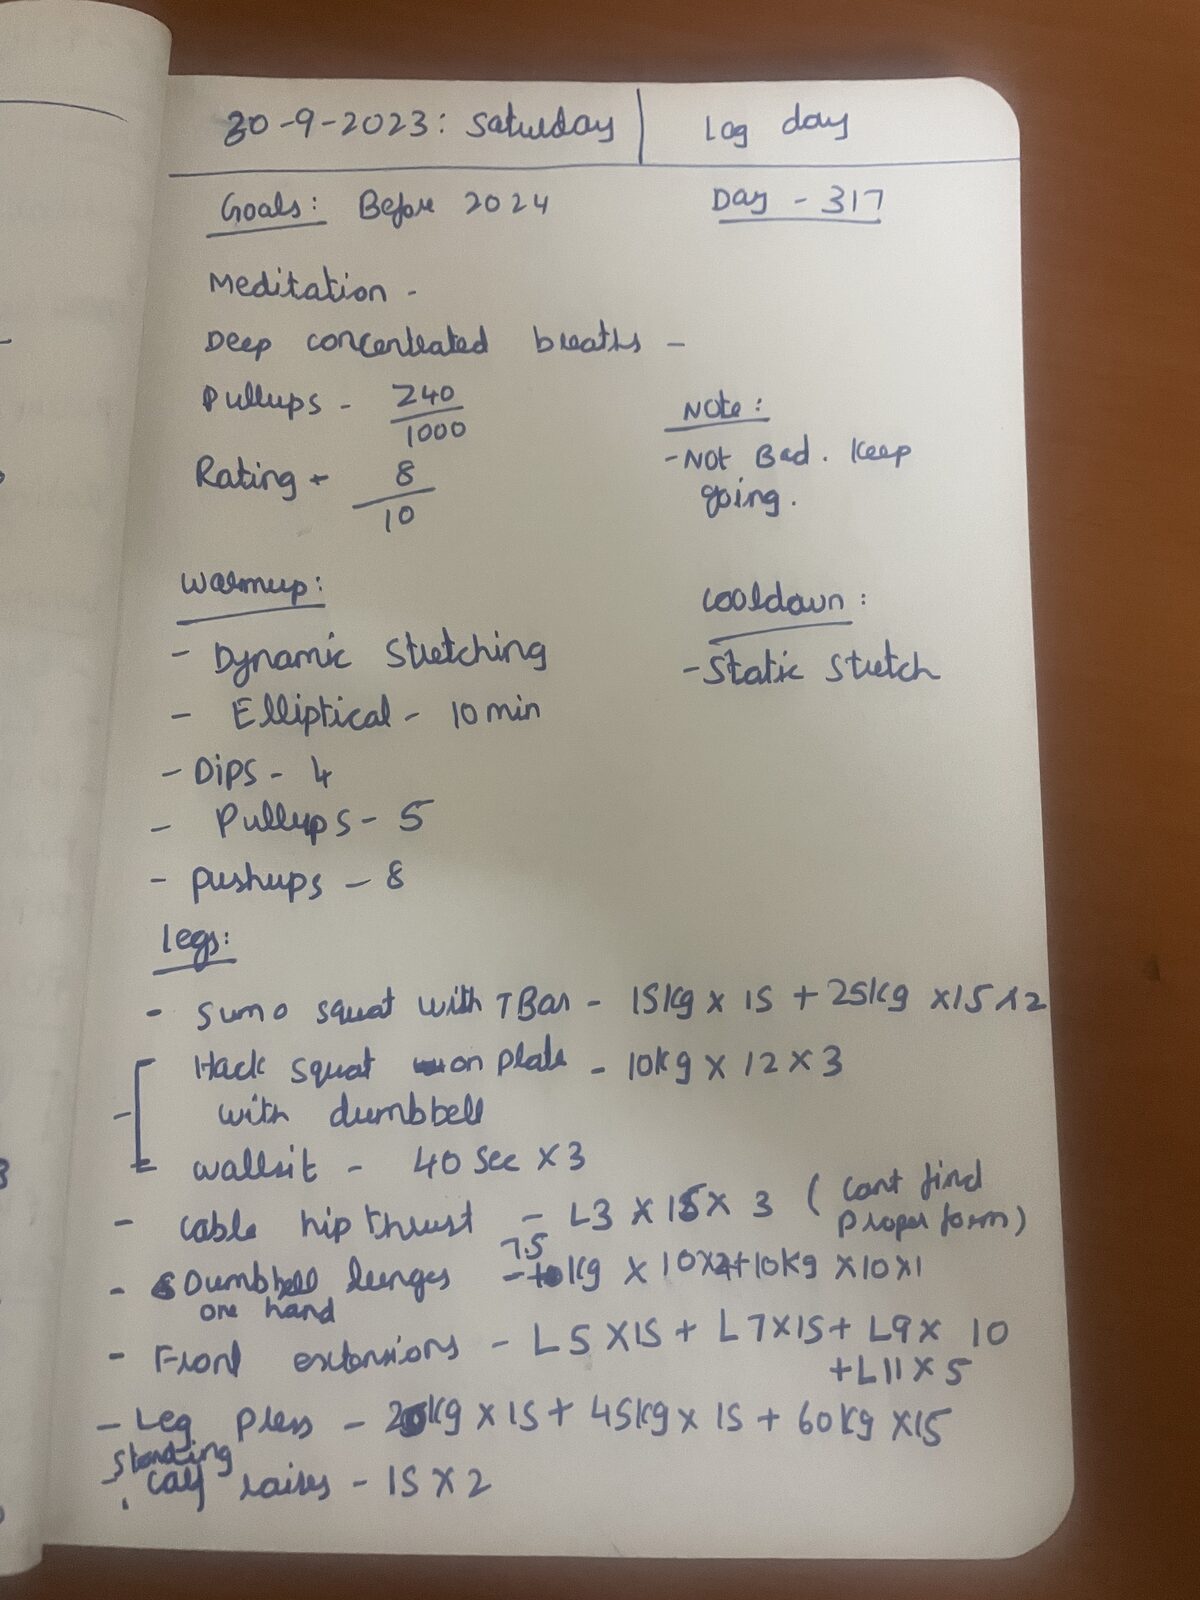 30-9-2023: Saturday | Leg day
Goals: Before 2024 Day - 317
Meditation -
Deep concentrated breaths -
Pullups - 240/1000
Rating - 8/10
Note:
- Not Bad. Keep
going.
Warmup:
- Dynamic Stretching
- Elliptical - 10 min
- Dips - 4
- Pullups - 5
- pushups - 8
Cooldown:
- Static Stretch
Legs:
- Sumo squat with T Bar - 15kg x 15 + 25kg x 15 x 2
- Hack squat on plate - 10kg x 12 x 3
with dumbbell
wallsit - 40 sec x 3
- cable hip thrust - L3 x 15 x 3 (Cant find
proper form)
- Dumbbell lunges - 7.5 kg x 10x2+10kg x10x1
one hand
- Front extensions - L5 x15 + L7x15+ L9x 10
+L11 x 5
- Leg press - 20kg x 15 + 45kg x 15 + 60kg x15
- standing
calf raises - 15 x 2